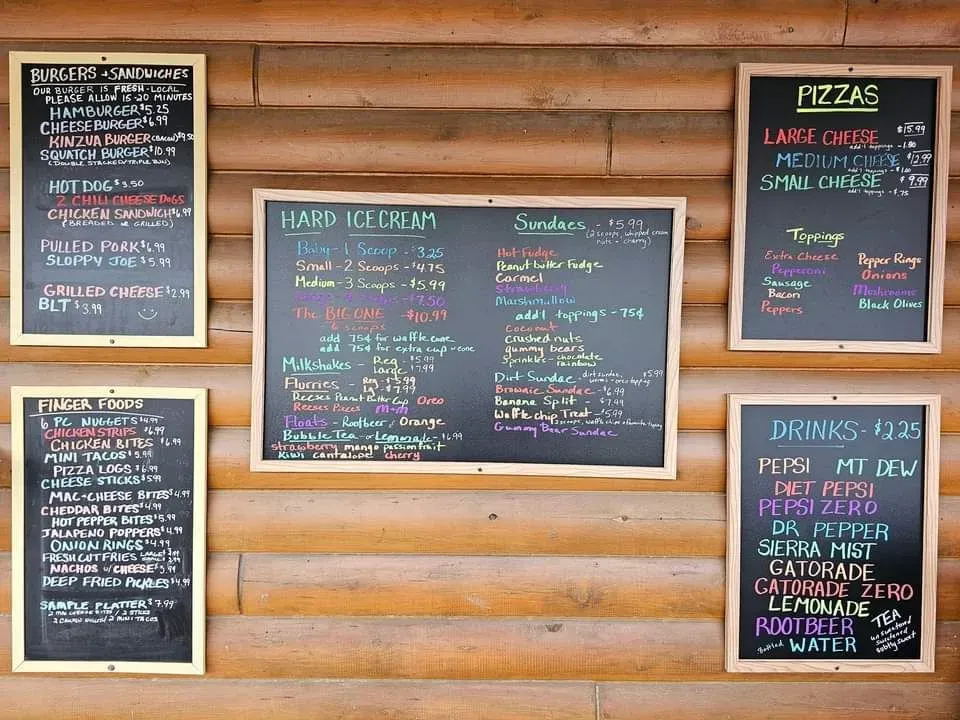 BURGERS + SANDWICHES
OUR BURGER IS FRESH - LOCAL
PLEASE ALLOW 15-20 MINUTES
HAMBURGER $5.25
CHEESEBURGER $6.99
KINZUA BURGER (BACON) $9.50
SQUATCH BURGER $10.99
(DOUBLE STACKED/TRIPLE BUN)
HOT DOG $3.50
2 CHILI CHEESE DOGS
CHICKEN SANDWICH $6.99
(BREADED or GRILLED)
PULLED PORK $6.99
SLOPPY JOE $5.99
GRILLED CHEESE $2.99
BLT $3.99
FINGER FOODS
6 PC NUGGETS $4.99
CHICKEN STRIPS $6.99
CHICKEN BITES $6.99
MINI TACOS $5.99
PIZZA LOGS $6.99
CHEESE STICKS $5.99
MAC+CHEESE BITES $4.99
CHEDDAR BITES $4.99
HOT PEPPER BITES $5.99
JALAPENO POPPERS $4.99
ONION RINGS $4.99
FRESH CUT FRIES LARGE SMALL
NACHOS w/ CHEESE $3.99
DEEP FRIED PICKLES $4.99
SAMPLE PLATTER $7.99
2 MAC CHEESE BITES / 2 STICKS
2 MINI TACOS
HARD ICECREAM
Baby - 1 Scoop - $3.25
Small - 2 Scoops - $4.75
Medium - 3 Scoops - $5.99
Large - Scoops - $7.50
The BIG ONE - $10.99
6 scoops
add 75¢ for waffle cone
add 75¢ for extra cup + cone
Milkshakes - Reg - $5.99
Large $7.99
Flurries - Reg - $5.99
Lg - $7.99
Reeses Peanut Butter Cup Oreo
Reeses Pieces M+M
Floats - Rootbeer or Orange
Bubble Tea - or Lemonade - $6.99
strawberry mango passion fruit
kiwi cantalope cherry
Sundaes - $5.99
(2 scoops, whipped cream
nuts - cherry)
Hot Fudge
Peanut butter Fudge
Carmel
Strawberry
Marshmallow
add'l toppings - 75¢
coconut
crushed nuts
gummy bears
Sprinkles - chocolate
rainbow
Dirt Sundae - dirt sundae, $5.99
worms - oreo topping
Brownie Sundae - $6.99
Banana Split - $7.99
Waffle chip Treat - $5.99
2 scoops, waffle chips + favorite topping
Gummy Bear Sundae
PIZZAS
LARGE CHEESE $15.99
add'l toppings -
MEDIUM CHEESE $12.99
add'l toppings - $1.00
SMALL CHEESE $9.99
add'l toppings - $.75
Toppings
Extra Cheese
Pepperoni
Sausage
Bacon
Peppers
Pepper Rings
Onions
Mushrooms
Black Olives
DRINKS - $2.25
PEPSI MT DEW
DIET PEPSI
PEPSI ZERO
DR PEPPER
SIERRA MIST
GATORADE
GATORADE ZERO
LEMONADE
ROOTBEER
Bottled WATER
TEA
unsweetened
sweetened
subtly sweet